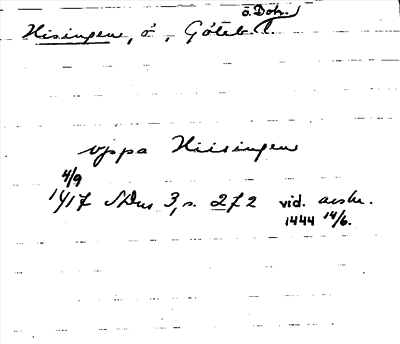 Hisingen, ö, Göteb. l.
o. Boh.
vppa Hiisingen
4/9
1417 SDns 3, s. 272 vid. avskr.
1444 14/6.